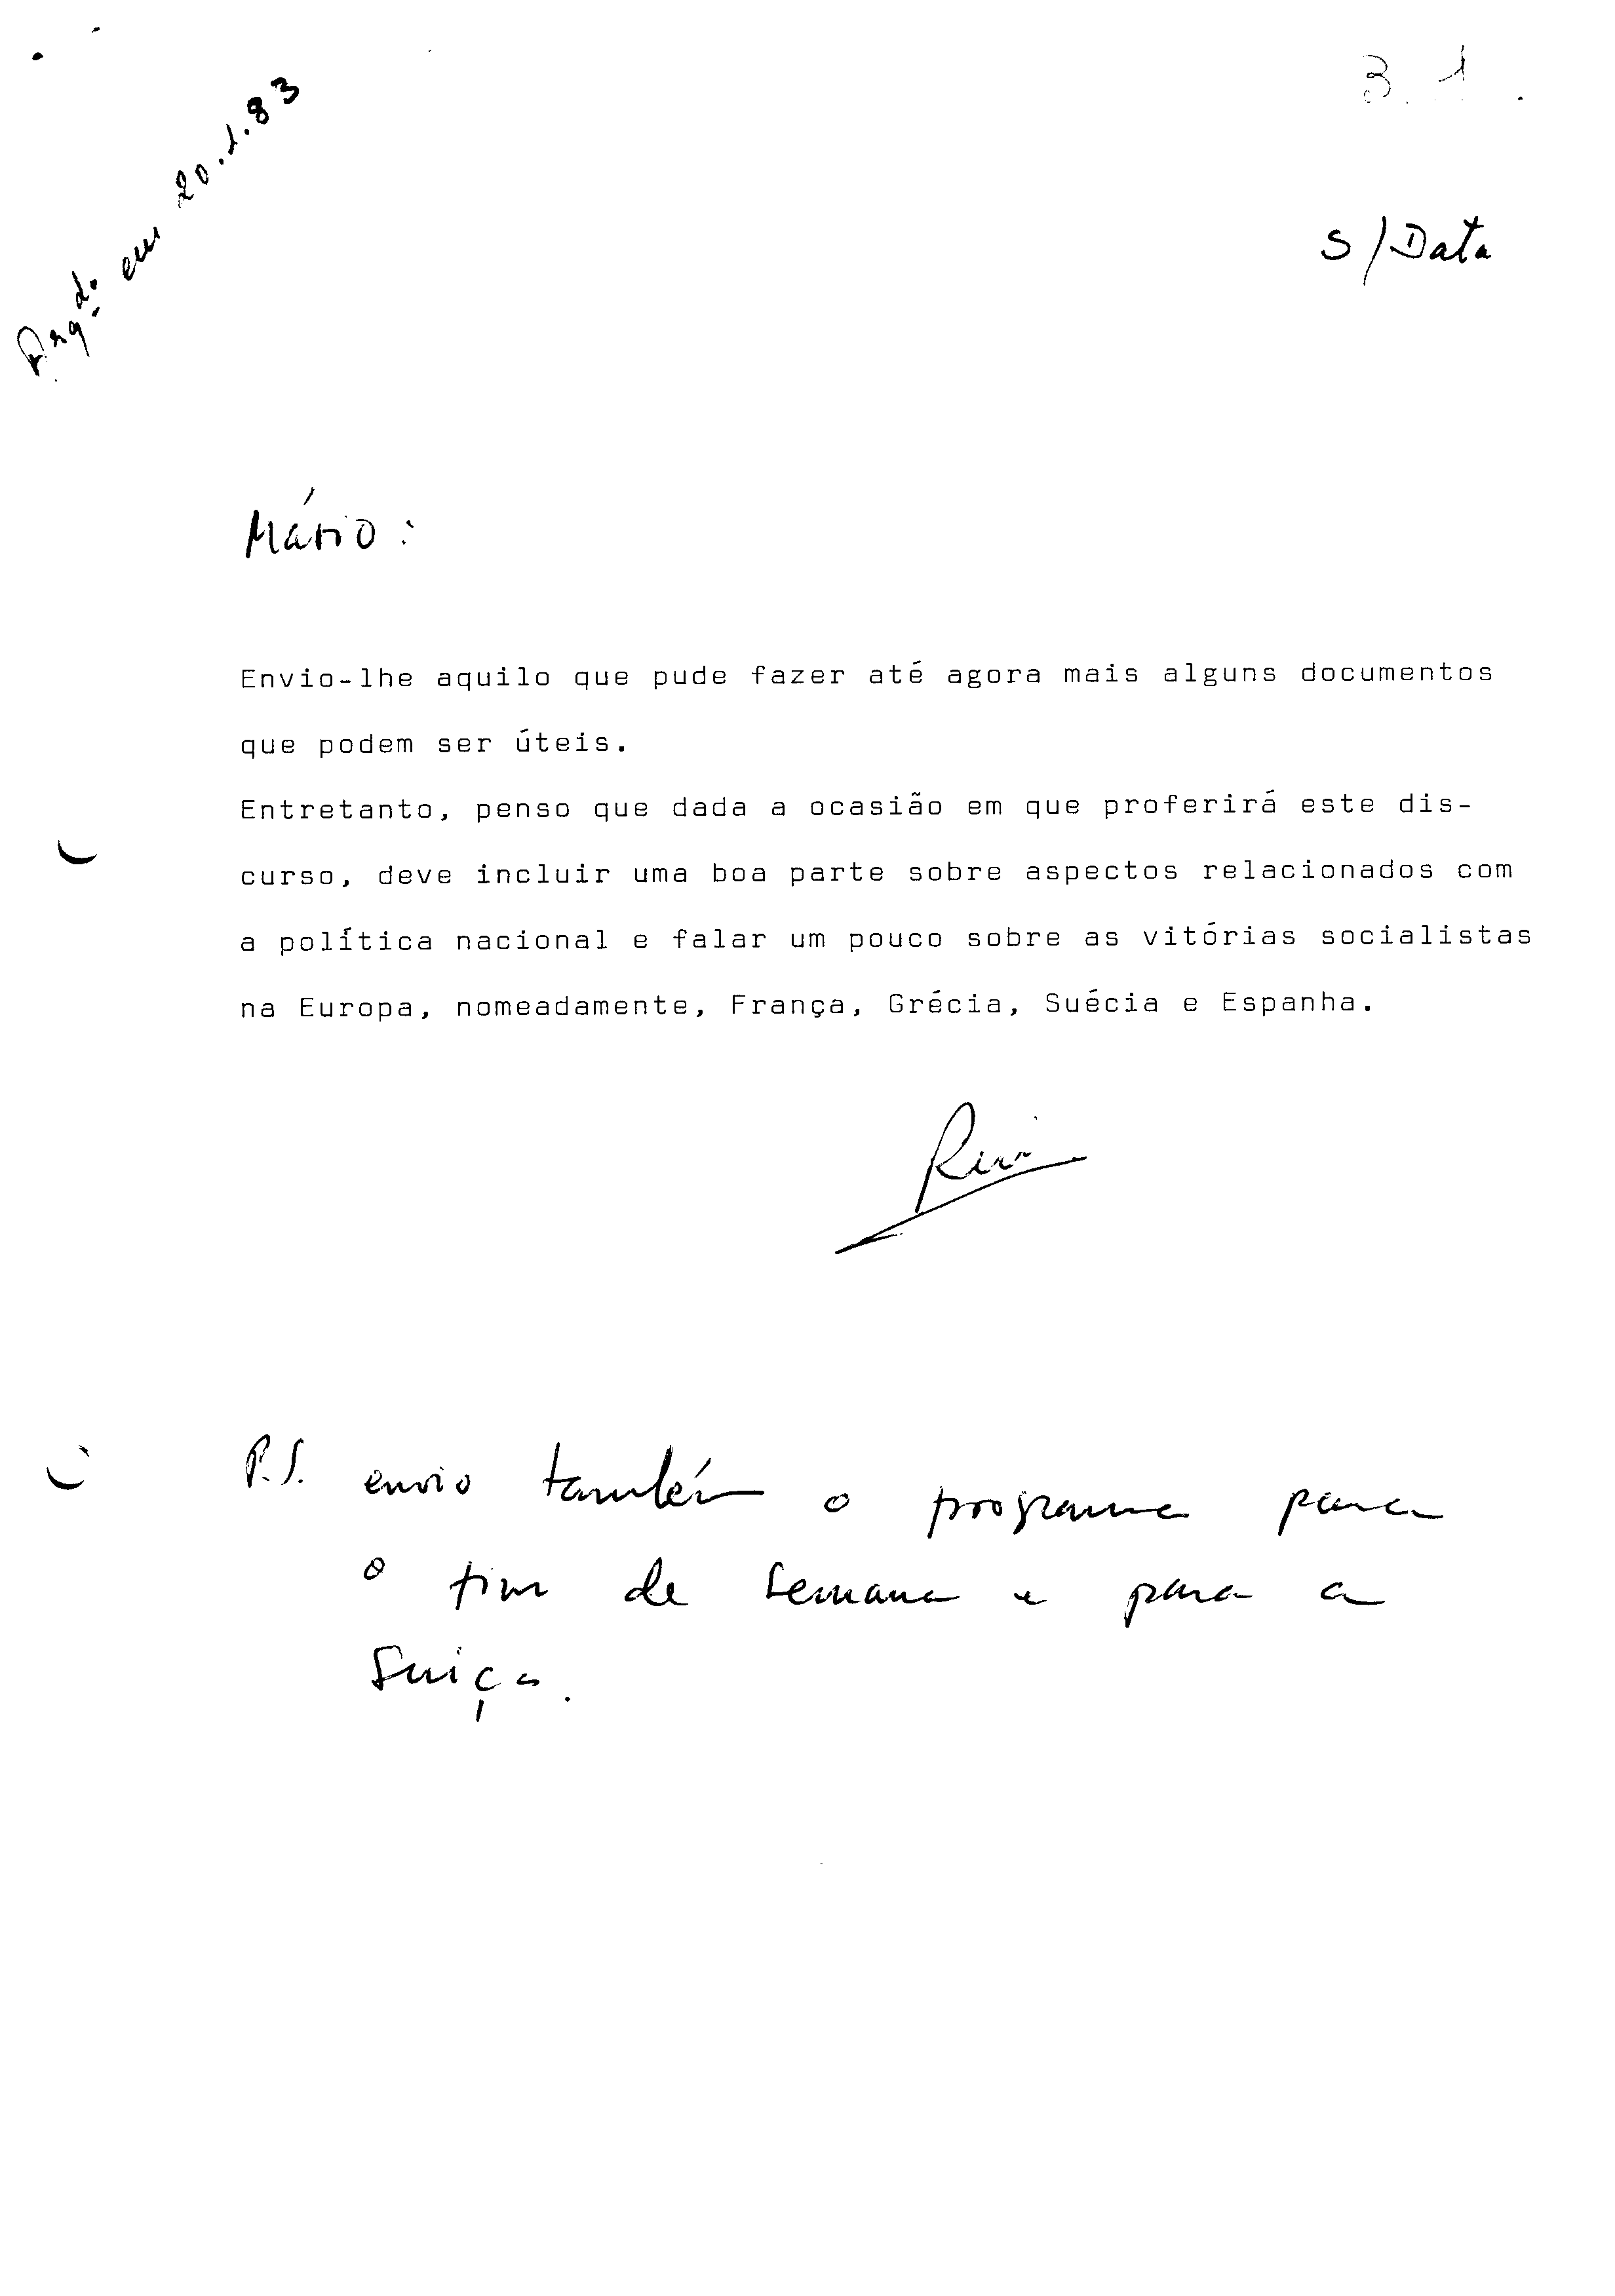 3.1.
Arq.do em 20.1.83
S/Data
Mário:
Envio-lhe aquilo que pude fazer até agora mais alguns documentos
que podem ser úteis.
Entretanto, penso que dada a ocasião em que proferirá este dis-
curso, deve incluir uma boa parte sobre aspectos relacionados com
a política nacional e falar um pouco sobre as vitórias socialistas
na Europa, nomeadamente, França, Grécia, Suécia e Espanha.
Rui
P.S. envio também o programa para
o fim de semana e para a
Suiça.